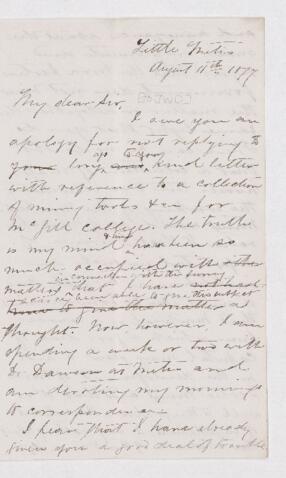 Little Metis
August 11th 1877
My dear Sir,
I owe you an
apology for not replying to
your long ago kind letter
with reference to a collection
of mining tools &c for
McGill College. The truth
is my mind & time has been so
much occupied with other
matters in connection with the Survey that I have not had
this subject a
thought. Now however, I am
spending a week or two with
Dr Dawson at Metis and
am devoting my mornings
to correspondence.
I fear that I have already
given you a good deal of trouble